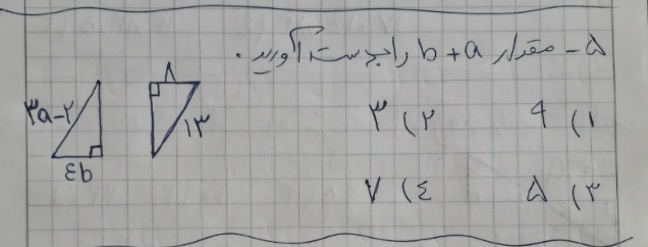 ۵- مقدار b+a را بدست آورید.
۱) ۴ ۲) ۳
۳) ۵ ٤) ۷
۳a-۲
٤b
۸
۱۳